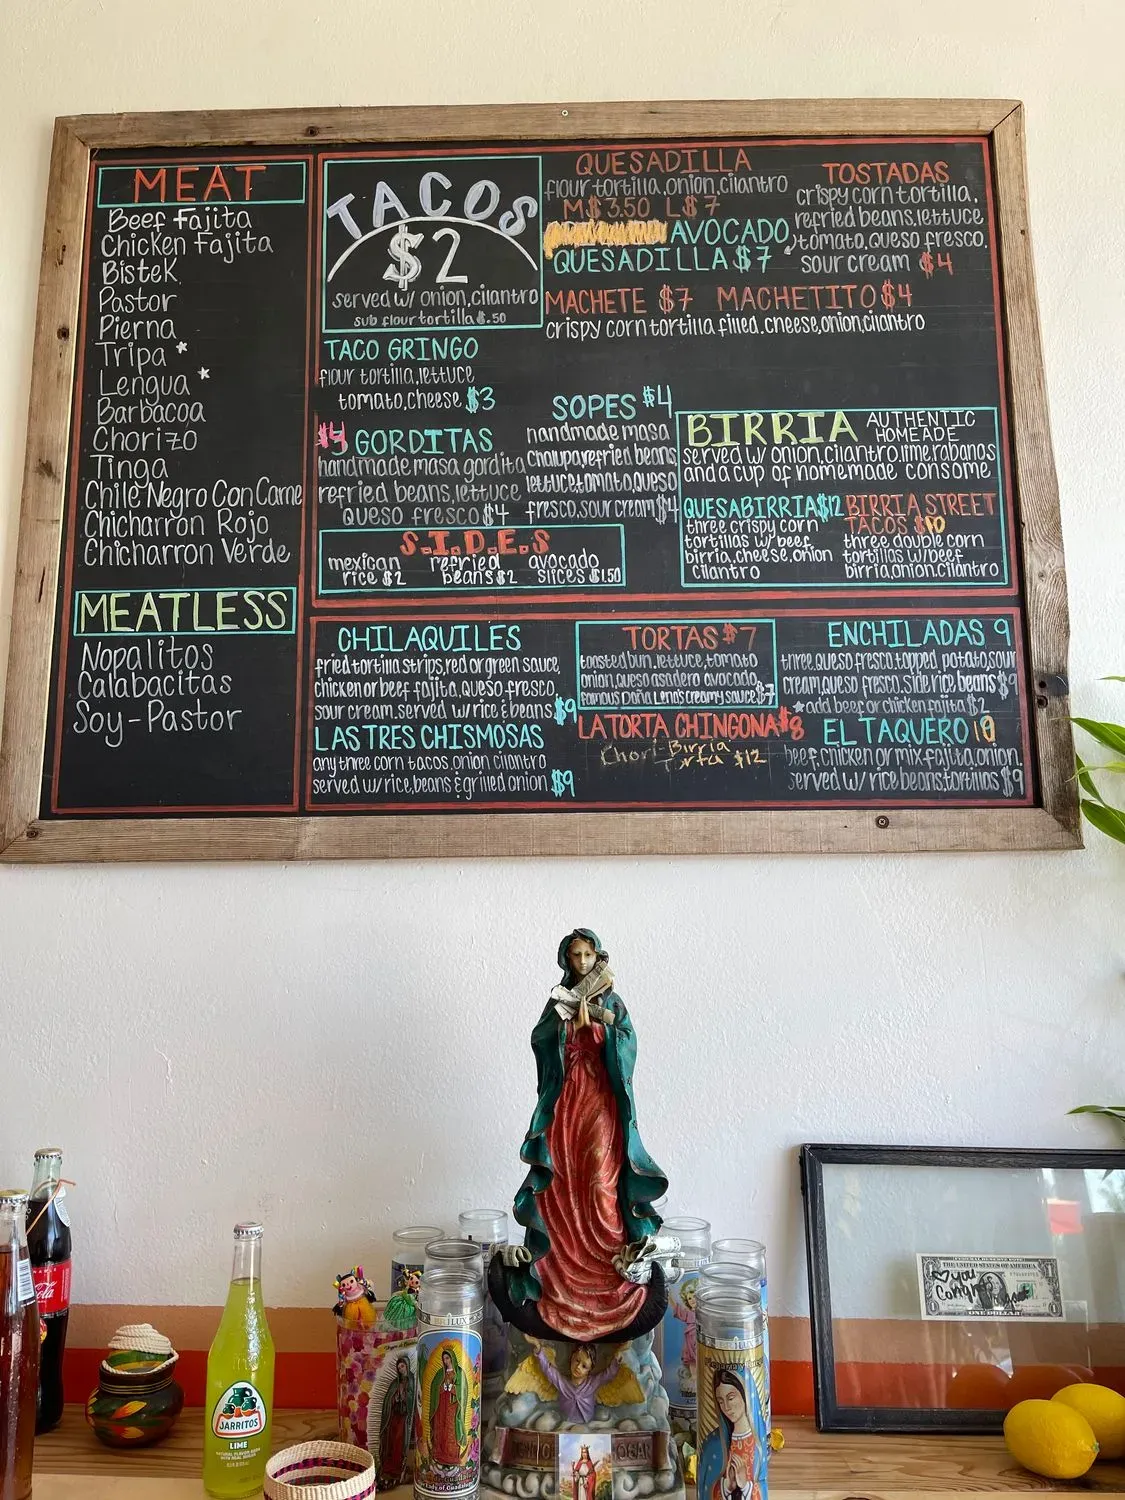 MEAT
Beef Fajita
Chicken Fajita
Bistek
Pastor
Pierna
Tripa *
Lengua *
Barbacoa
Chorizo
Tinga
Chile Negro Con Carne
Chicharron Rojo
Chicharron Verde
MEATLESS
Nopalitos
Calabacitas
Soy-Pastor
TACOS
$2
served w/ onion, cilantro
sub flour tortilla $.50
TACO GRINGO
flour tortilla, lettuce
tomato, cheese $3
$4 GORDITAS
handmade masa gordita
refried beans, lettuce
queso fresco $4
QUESADILLA
flour tortilla, onion, cilantro
M $3.50 L $7
AVOCADO
QUESADILLA $7
TOSTADAS
crispy corn tortilla,
refried beans, lettuce
, tomato, queso fresco.
sour cream $4
MACHETE $7 MACHETITO $4
crispy corn tortilla filled. cheese, onion, cilantro
SOPES $4
handmade masa
chalupa, refried beans
lettuce, tomato, queso
fresco, sour cream $4
S.I.D.E.S
mexican
rice $2
refried
beans $2
avocado
slices $1.50
BIRRIA AUTHENTIC
HOMEADE
served w/ onion, cilantro, lime, rabanos
and a cup of homemade consome
QUESABIRRIA $12
three crispy corn
tortillas w/ beef
birria, cheese, onion
cilantro
BIRRIA STREET
TACOS $10
three double corn
tortillas w/ beef
birria, onion, cilantro
CHILAQUILES
fried tortilla strips, red or green sauce,
chicken or beef fajita, queso fresco
sour cream. served w/ rice & beans $9
LAS TRES CHISMOSAS
any three corn tacos, onion cilantro
served w/ rice, beans & grilled onion $9
TORTAS $7
toasted bun, lettuce, tomato
onion, queso asadero avocado
famous Doña Lena's creamy sauce $7
LA TORTA CHINGONA $8
Chori-Birria
Torta $12
ENCHILADAS 9
three, queso fresco, topped, potato, sour
cream, queso fresco, side rice, beans $9
* add beef or chicken fajita $2
EL TAQUERO 10
beef, chicken or mix fajita, onion.
served w/ rice beans, tortillas $9
JARRITOS
LIME
BRILUX
FEDERAL RESERVE NOTE
THE UNITED STATES OF AMERICA
ONE DOLLAR